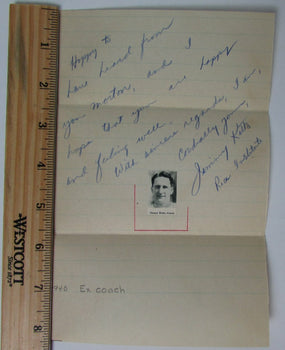 Happy to
have heard from
you Morton, and I
hope that you are happy
and feeling well.
With sincere regards, I am,
Cordially yours,
Jimmy Kitts
Rice Institute
Ex coach
WESTCOTT
1
2
3
4
5
6
7
8